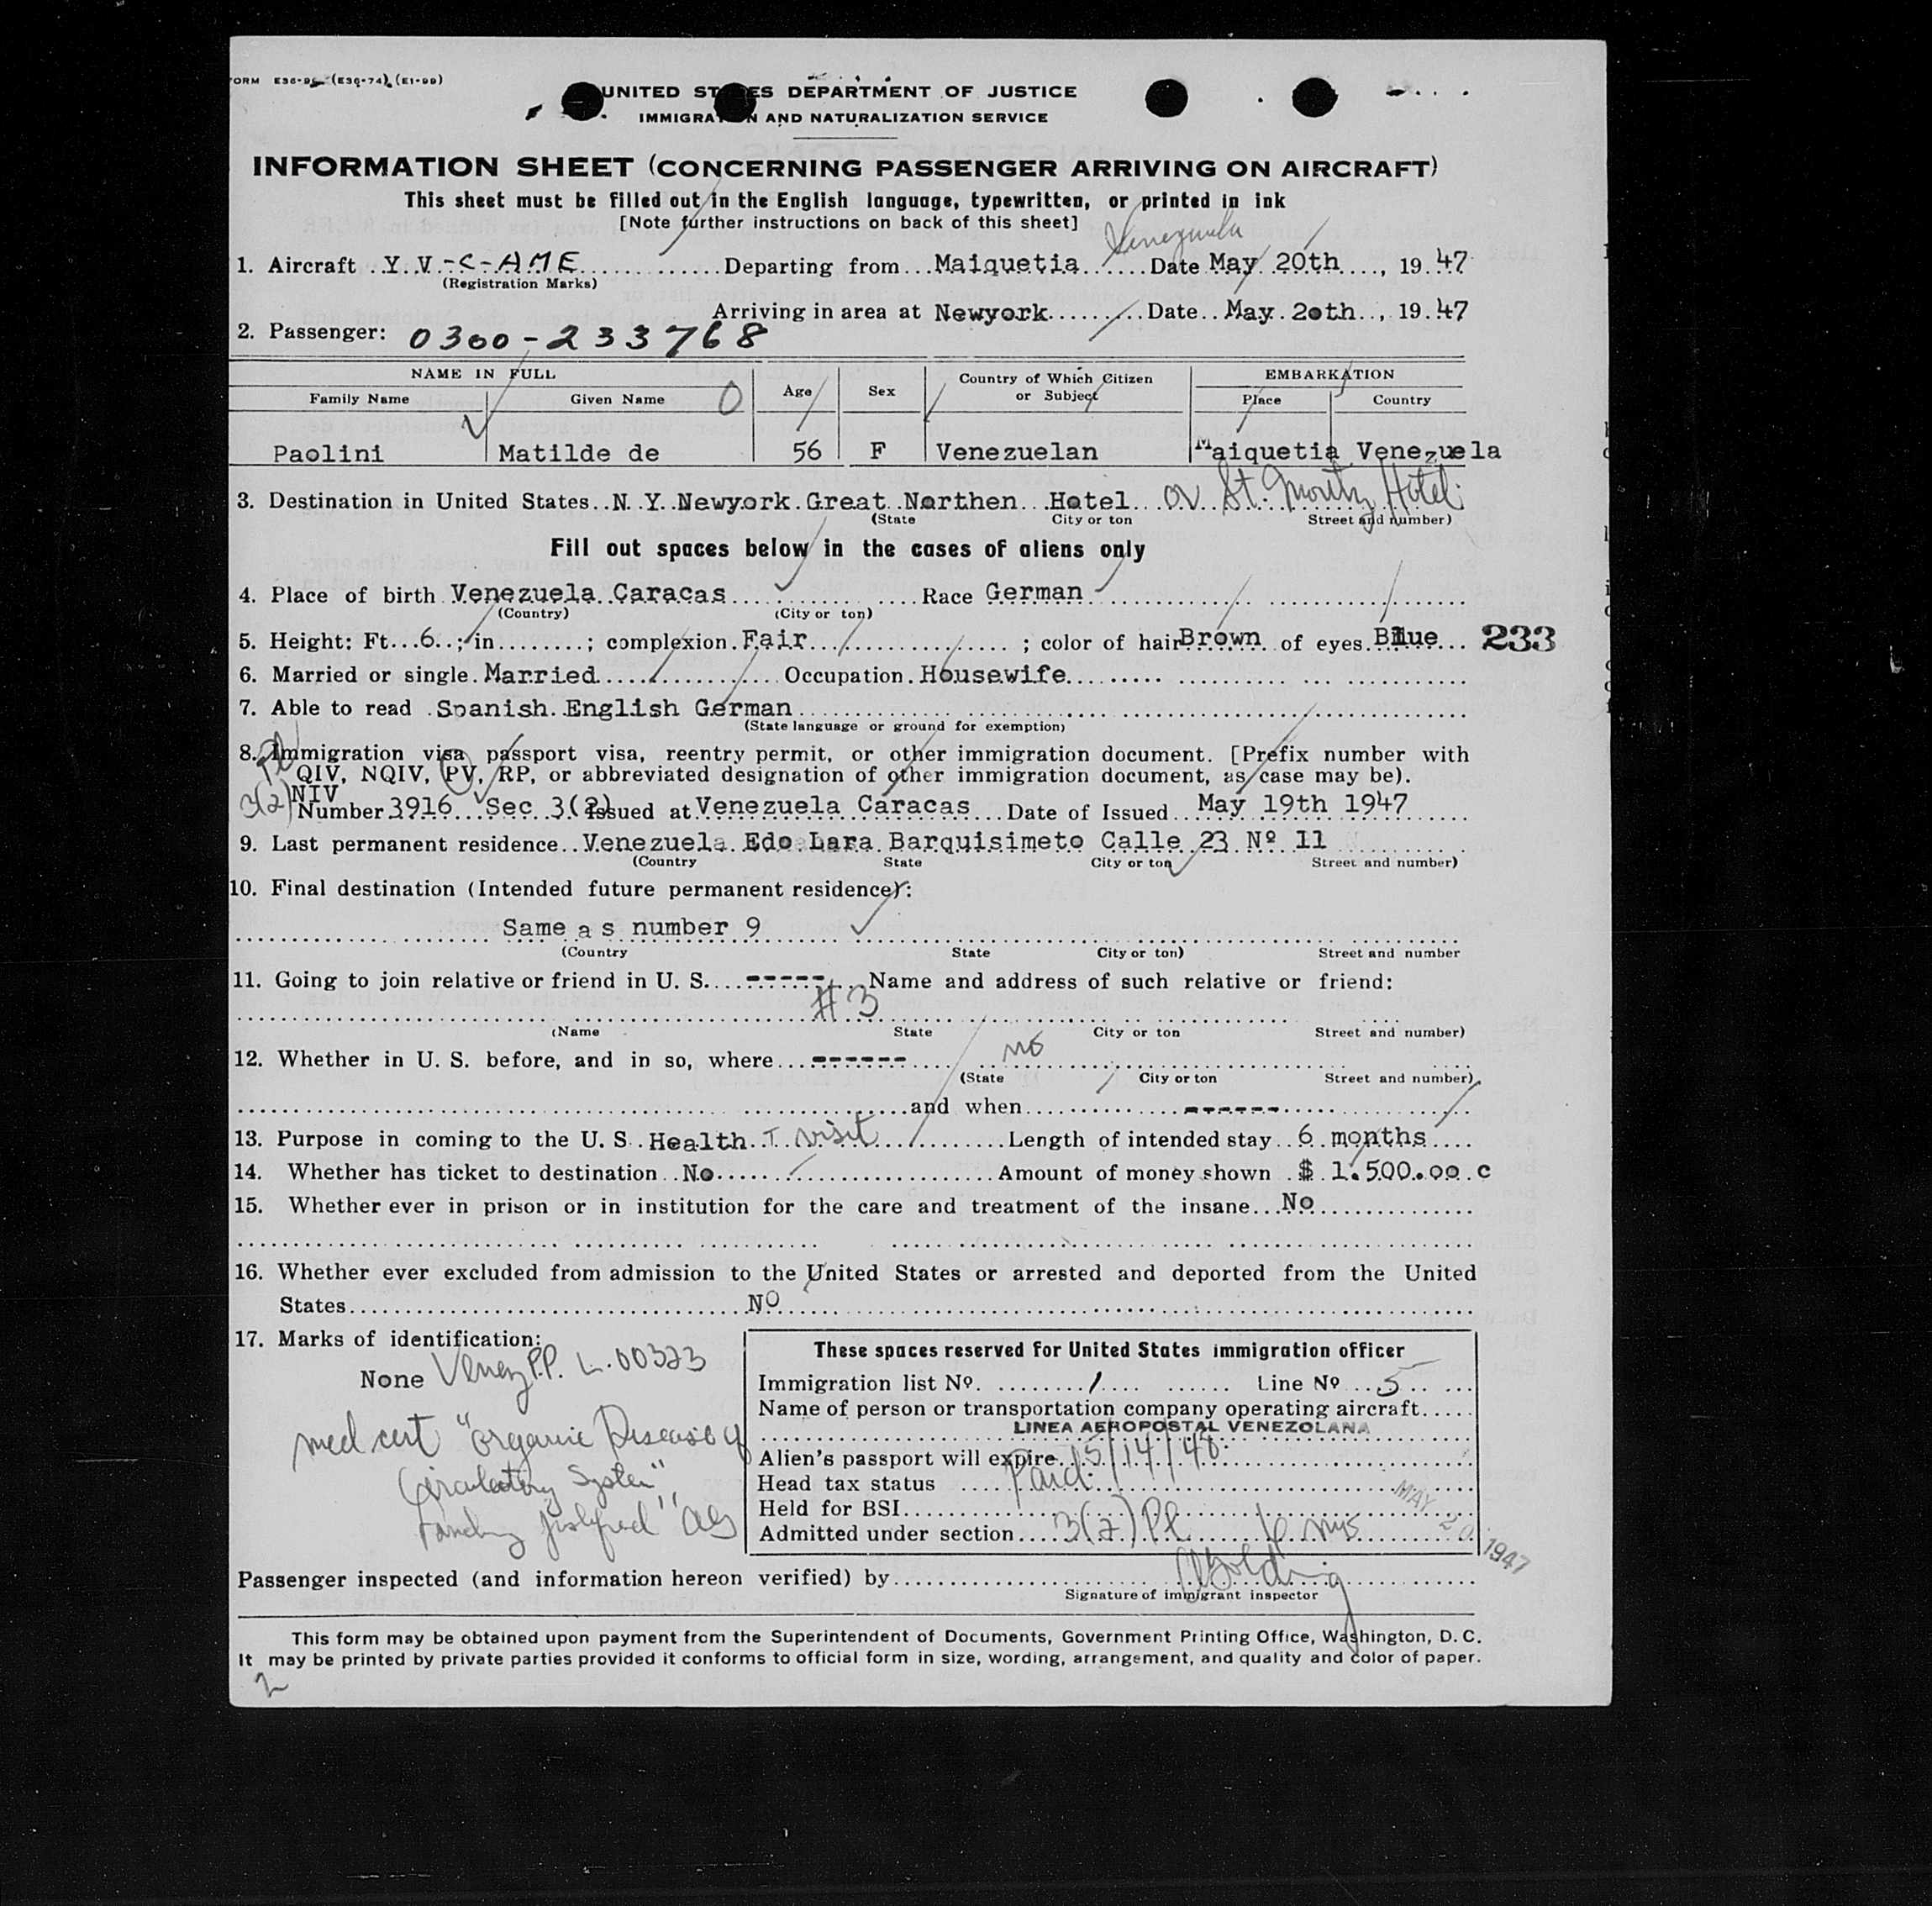 FORM E36-96 (E36-74) (E1-99)
UNITED STATES DEPARTMENT OF JUSTICE
IMMIGRATION AND NATURALIZATION SERVICE
INFORMATION SHEET (CONCERNING PASSENGER ARRIVING ON AIRCRAFT)
This sheet must be filled out in the English language, typewritten, or printed in ink
[Note further instructions on back of this sheet]
Venezuela
1. Aircraft Y V -C-AME Departing from Maiquetia Date May 20th, 19 47
(Registration Marks)
Arriving in area at Newyork Date May 20th, 19 47
2. Passenger: 0300-233768
NAME IN FULL Age Sex Country of Which Citizen or Subject EMBARKATION
Family Name Given Name Place Country
Paolini Matilde de 56 F Venezuelan Maiquetia Venezuela
3. Destination in United States N. Y. Newyork Great Northen Hotel or St. Moritz Hotel
(State City or ton Street and number)
Fill out spaces below in the cases of aliens only
4. Place of birth Venezuela Caracas Race German
(Country) (City or ton)
5. Height: Ft. 6 ; in ; complexion Fair ; color of hair Brown of eyes Blue 233
6. Married or single Married Occupation Housewife
7. Able to read Spanish English German
(State language or ground for exemption)
8. Immigration visa, passport visa, reentry permit, or other immigration document. [Prefix number with
QIV, NQIV, PV, RP, or abbreviated designation of other immigration document, as case may be).
3(2) NIV
Number 3916 Sec 3(2) Issued at Venezuela Caracas Date of Issued May 19th 1947
9. Last permanent residence Venezuela Edo Lara Barquisimeto Calle 23 Nº 11
(Country State City or ton Street and number)
10. Final destination (Intended future permanent residence):
Same a s number 9
(Country State City or ton) Street and number
11. Going to join relative or friend in U. S. ------ Name and address of such relative or friend:
#3
(Name State City or ton Street and number)
12. Whether in U. S. before, and in so, where ------- no
(State City or ton Street and number)
and when -------
13. Purpose in coming to the U. S. Health T visit Length of intended stay 6 months
14. Whether has ticket to destination No Amount of money shown $ 1.500.oo c
15. Whether ever in prison or in institution for the care and treatment of the insane No
16. Whether ever excluded from admission to the United States or arrested and deported from the United
States NO
17. Marks of identification:
None Venez P.P. L.00323
med cert "organic Disease of
Circulatory System"
These spaces reserved for United States immigration officer
Immigration list Nº. 1 Line Nº 5
Name of person or transportation company operating aircraft
LINEA AEROPOSTAL VENEZOLANA
Alien's passport will expire 5/14/48
Head tax status Paid
Held for BSI
Admitted under section 3(2) Pl
MAY 20 1947
Passenger inspected (and information hereon verified) by
Signature of immigrant inspector
This form may be obtained upon payment from the Superintendent of Documents, Government Printing Office, Washington, D. C.
It may be printed by private parties provided it conforms to official form in size, wording, arrangement, and quality and color of paper.
2